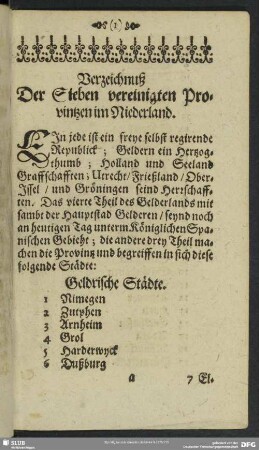 (1)
Verzeichnuß
Der Sieben vereinigten Pro-
vintzen im Niederland.
EIn jede ist ein freye selbst regirende
Republick; Geldern ein Hertzog-
thumb; Holland und Seeland
Graffschafften; Utrecht/ Frießland/ Ober-
Issel/ und Gröningen seind Herrschaff-
ten. Das vierte Theil des Gelderlands mit
sambt der Hauptstad Gelderen/ seynd noch
an heutigen Tag unterm Königlichen Spa-
nischen Gebieht; die andere drey Theil ma-
chen die Provintz und begreiffen in sich diese
folgende Städte:
Geldrische Städte.
1 Nimegen
2 Zutphen
3 Arnheim
4 Grol
5 Harderwyck
6 Dußburg
a 7 El-
SLUB
DFG